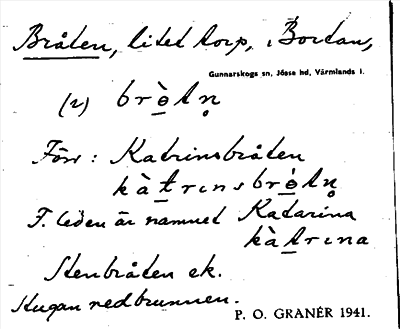 Bråten, litet torp, i Bortan,
Gunnarskogs sn, Jösse hd, Värmlands l.
(2) brò̲tn̥
Förr: Katrinsbråten
kàt̲rɩnsbrò̲tn̥
F. leden är namnet Katarina
kàt̲rɩna
Stenbråten ek.
Stugan nedbrunnen.
P. O. GRANÉR 1941.